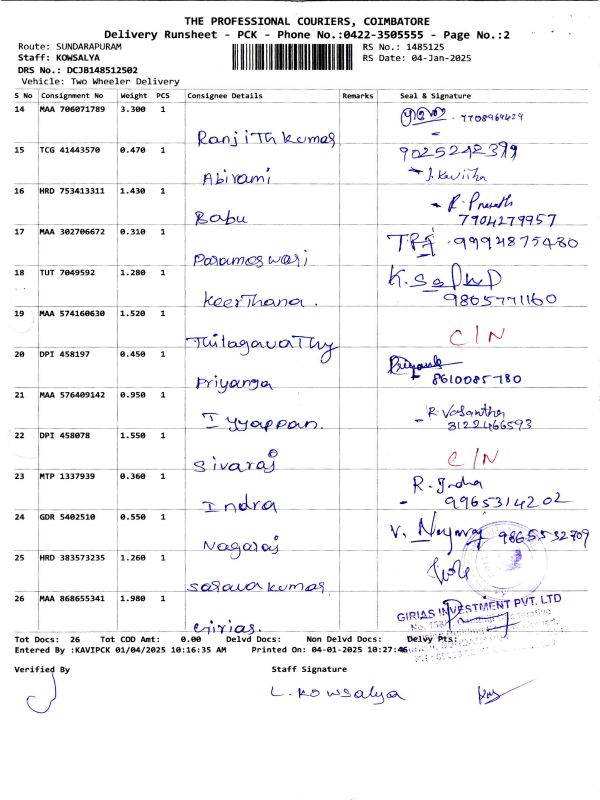 THE PROFESSIONAL COURIERS, COIMBATORE
Delivery Runsheet - PCK - Phone No.:0422-3505555 - Page No.:2
Route: SUNDARAPURAM RS No.: 1485125
Staff: KOWSALYA RS Date: 04-Jan-2025
DRS No.: DCJB148512502
Vehicle: Two Wheeler Delivery
S No Consignment No Weight PCS Consignee Details Remarks Seal & Signature
14 MAA 706071789 3.300 1 Ranjithkumar 7708969429
15 TCG 41443570 0.470 1 Abirami 9025242399
J. Kavitha
16 HRD 753413311 1.430 1 Babu
7904279957
17 MAA 302706672 0.310 1 Parameswari 9994875480
18 TUT 7049592 1.280 1 Keerthana. 9865771160
19 MAA 574160630 1.520 1 Thilagavathy C/N
20 DPI 458197 0.450 1 Priyanga 8610085780
21 MAA 576409142 0.950 1 Iyyappan. R. Vasantha
3122466593
22 DPI 458078 1.550 1 Sivaraj C/N
23 MTP 1337939 0.360 1 Indra R. Indra
9965314202
24 GDR 5402510 0.550 1 Nagaraj V. Nagaraj 9865532709
25 HRD 383573235 1.260 1 Saravakumar
26 MAA 868655341 1.980 1 Girias. GIRIAS INVESTMENT PVT. LTD
Tot Docs: 26 Tot COD Amt: 0.00 Delvd Docs: Non Delvd Docs: Delvy Pts:
Entered By :KAVIPCK 01/04/2025 10:16:35 AM Printed On: 04-01-2025 10:27:46
Verified By Staff Signature
L. Kowsalya